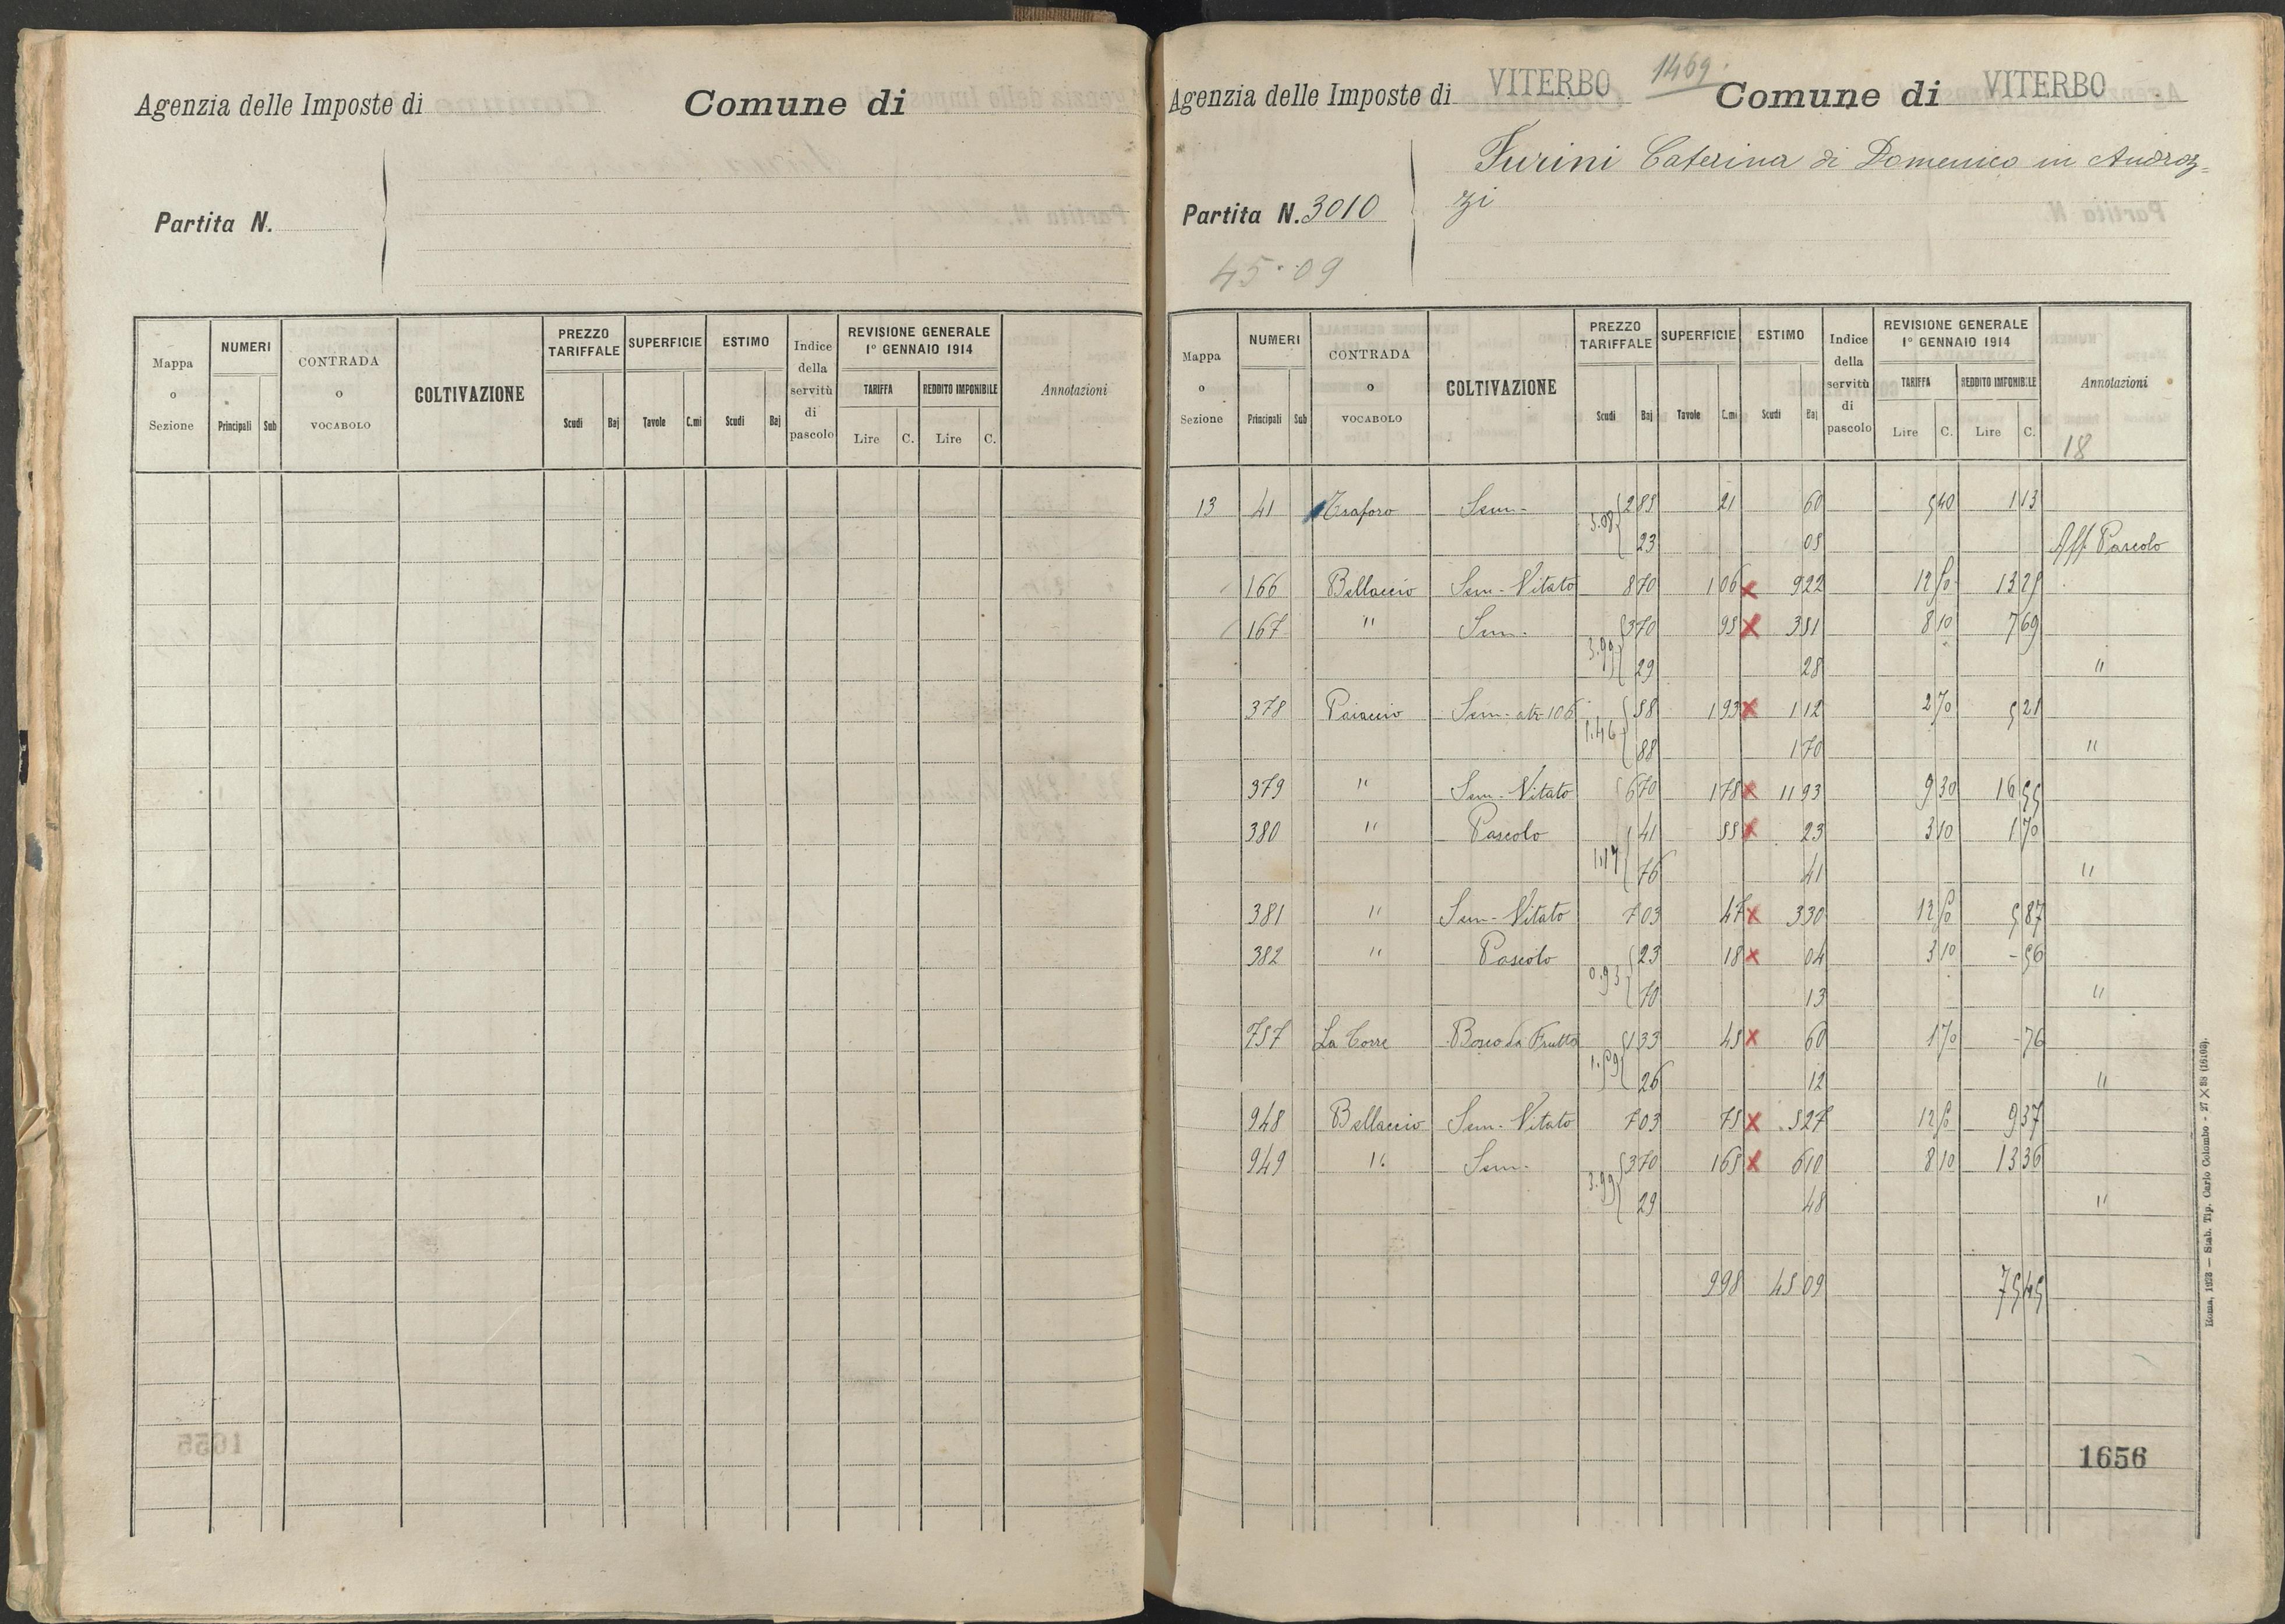 Agenzia delle Imposte di Comune di
Partita N.
Mappa o Sezione NUMERI Principali Sub CONTRADA o VOCABOLO COLTIVAZIONE PREZZO TARIFFALE Scudi Baj SUPERFICIE Tavole C.mi ESTIMO Scudi Baj Indice della servitù di pascolo REVISIONE GENERALE 1° GENNAIO 1914 TARIFFA Lire C. REDDITO IMPONIBILE Lire C. Annotazioni
1655
Agenzia delle Imposte di VITERBO 1469. Comune di VITERBO
Furini Caterina di Domenico in Androz=
Partita N. 3010 zi
45.09
Mappa o Sezione NUMERI Principali Sub CONTRADA o VOCABOLO COLTIVAZIONE PREZZO TARIFFALE Scudi Baj SUPERFICIE Tavole C.mi ESTIMO Scudi Baj Indice della servitù di pascolo REVISIONE GENERALE 1° GENNAIO 1914 TARIFFA Lire C. REDDITO IMPONIBILE Lire C. Annotazioni
18
13 41 Traforo Sem. 3.08 2 85 21 60 5 40 1 13
23 05 Aff Pascolo
166 Bellaccio Sem. Vitato 8 70 1 06 x 9 22 12 50 13 25
167 " Sem. 3.99 3 70 95 x 3 51 8 10 7 69
29 28 "
378 Poiaccio Sem. atr 106 1.46 58 1 93 x 1 12 2 70 5 21
88 1 70 "
379 " Sem. Vitato 6 70 1 78 x 11 93 9 30 16 55
380 " Pascolo 1.17 41 55 x 23 3 10 1 70
76 41 "
381 " Sem. Vitato 7 03 47 x 3 30 12 50 5 87
382 " Pascolo 0.93 23 18 x 04 3 10 - 56
70 13 "
757 La Corre Bosco da Frutto 1.59 1 33 45 x 60 1 70 - 76
26 12 "
948 Bellaccio Sem. Vitato 7 03 75 x 5 27 12 50 9 37
949 " Sem. 3.99 3 70 1 65 x 6 10 8 10 13 36
29 48 "
9 98 45 09 75 45
1656
Roma, 1923 — Stab. Tip. Carlo Colombo - 27 X 38 (16193).